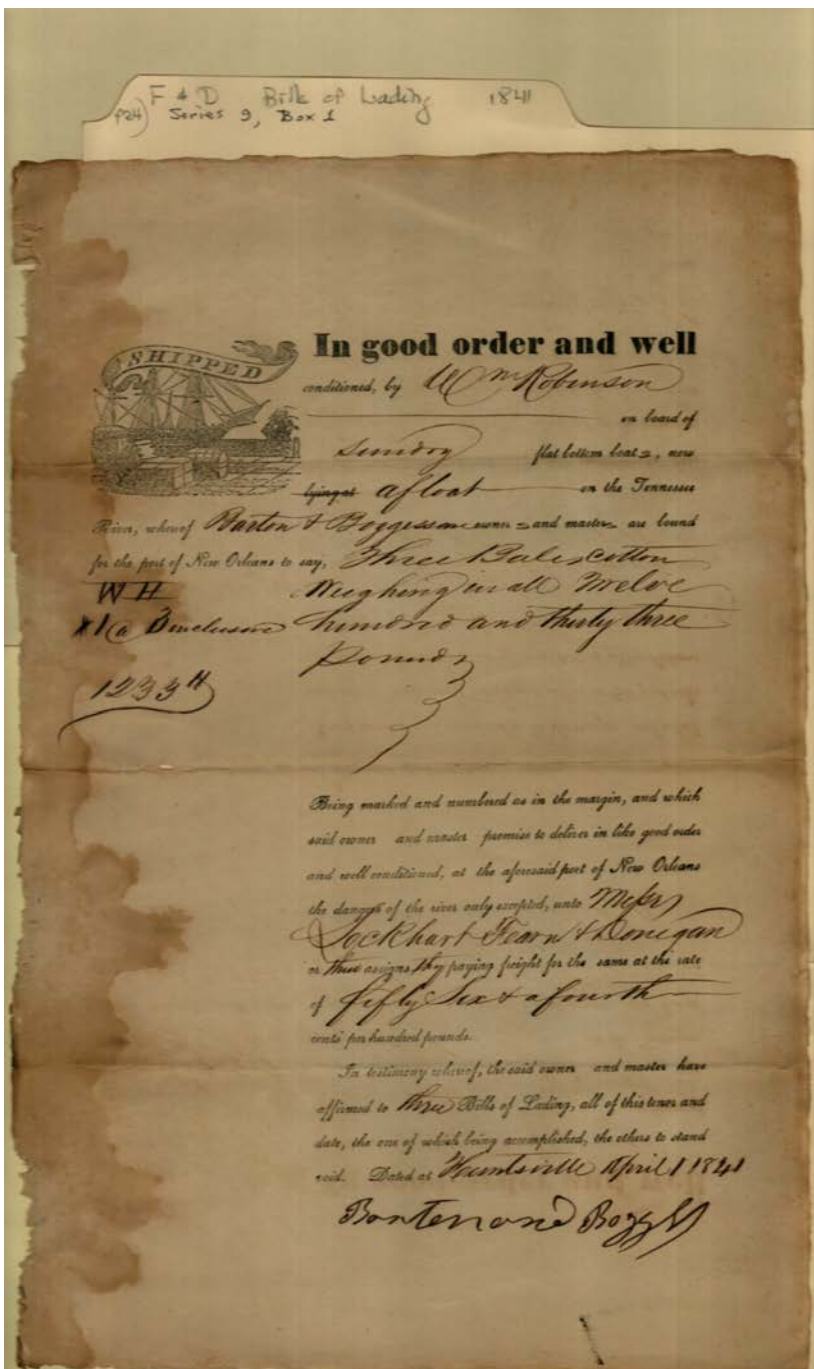 F & D Bills of Lading 1841
P24) Series 9, Box 1
SHIPPED
In good order and well
conditioned, by Wm Robinson
on board of
Sundry flat bottom boats, now
lying at afloat on the Tennessee
River, whereof Barton & Boggess are owners and masters are bound
for the port of New Orleans to say, Three Bales cotton
WH Weighing in all Twelve
#1 @ 3 inclusive hundred and thirty three
Pounds
1233 lb
Being marked and numbered as in the margin, and which
said owner and master promise to deliver in like good order
and well conditioned, at the aforesaid port of New Orleans
the dangers of the river only excepted, unto Messrs
Lockhart Fearn & Donegan
or their assigns they paying freight for the same at the rate
of fifty Six & a fourth
cents per hundred pounds.
In testimony whereof, the said owner and master have
affirmed to three Bills of Lading, all of this tenor and
date, the one of which being accomplished, the others to stand
void. Dated at Huntsville April 1 1841
Barton and Boggess